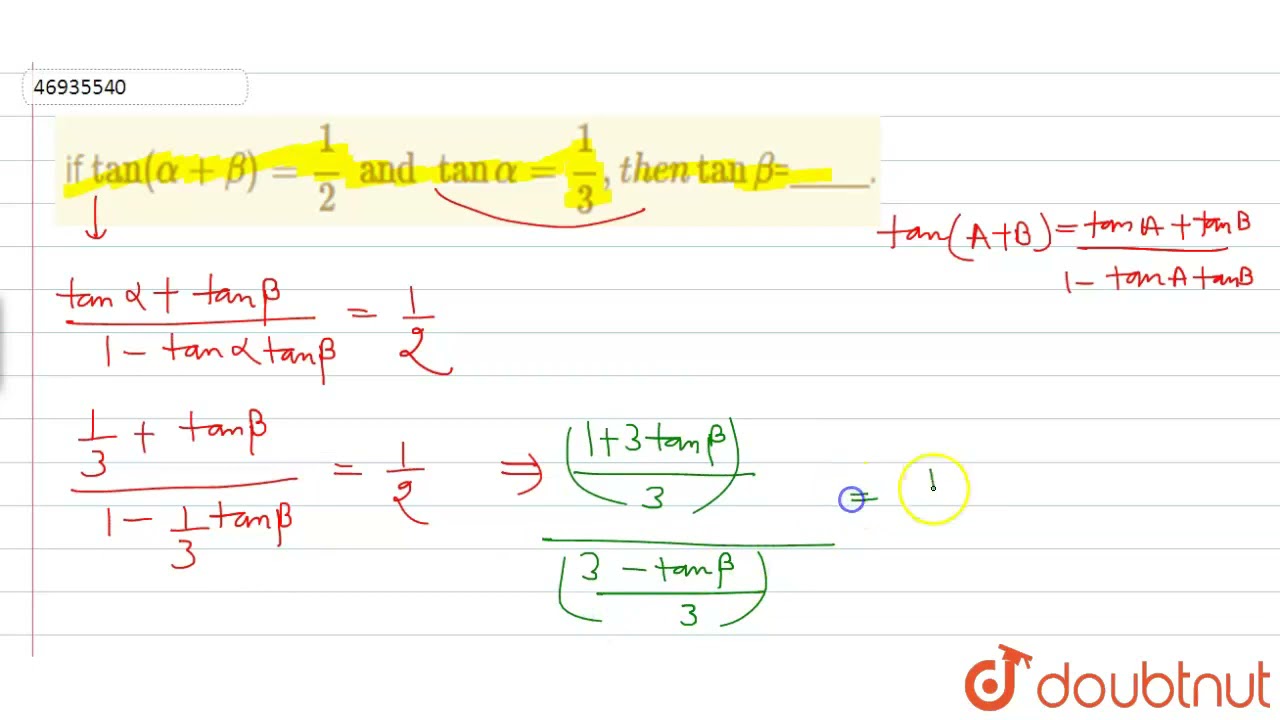 46935540
if tan(α + β) = 1/2 and tan α = 1/3, then tan β=_____.
tan(A+B) = tan A + tan B / 1 - tan A tan B
tan α + tan β / 1 - tan α tan β = 1/2
1/3 + tan β / 1 - 1/3 tan β = 1/2 ⇒ (1+3 tan β / 3) / (3 - tan β / 3) = 1
doubtnut